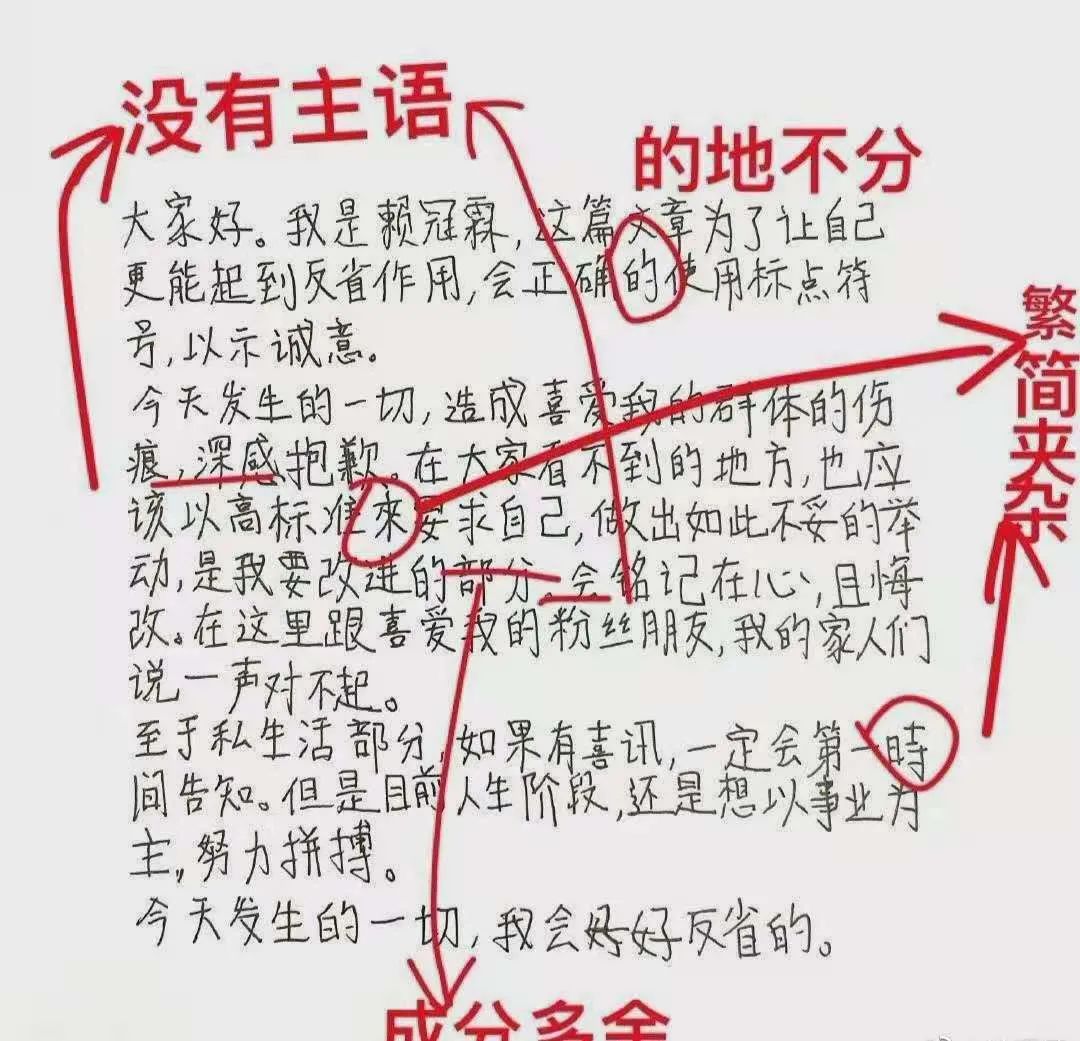 没有主语
的地不分
大家好。我是赖冠霖,这篇文章为了让自己
更能起到反省作用,会正确的使用标点符
号,以示诚意。
繁简夹杂
今天发生的一切,造成喜爱我的群体的伤
痕,深感抱歉。在大家看不到的地方,也应
该以高标准來要求自己,做出如此不妥的举
动,是我要改进的部分。会铭记在心,且悔
改。在这里跟喜爱我的粉丝朋友,我的家人们
说一声对不起。
至于私生活部分,如果有喜讯,一定会第一時
间告知。但是目前人生阶段,还是想以事业为
主,努力拼搏。
今天发生的一切,我会好好反省的。
成分多余